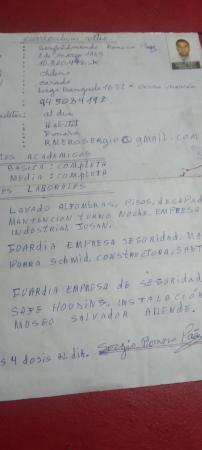 : Sergio Fernando Romero Páez
: 2 de marzo 1969
: Chileno
: Casado
al día
: Habitat
: Fonasa
: RMEROSERGIO@gmail.com
ACADEMICOS
BASICA : COMPLETA
MEDIA : COMPLETA
LABORALES
LAVADO ALFOMBRAS, PISOS, DECAPAD
MANTENCION TURNO NOCHE. EMPRESA
INDUSTRIAL JUSAN.
GUARDIA EMPRESA SEGURIDAD. MA
PARRA SCHMID. CONSTRUCTORA, SANT
GUARDIA EMPRESA DE SEGURIDAD
SAFE HOUSING, INSTALACIÓN
MUSEO SALVADOR ALLENDE.
4 dosis al día. Sergio Romero Páez